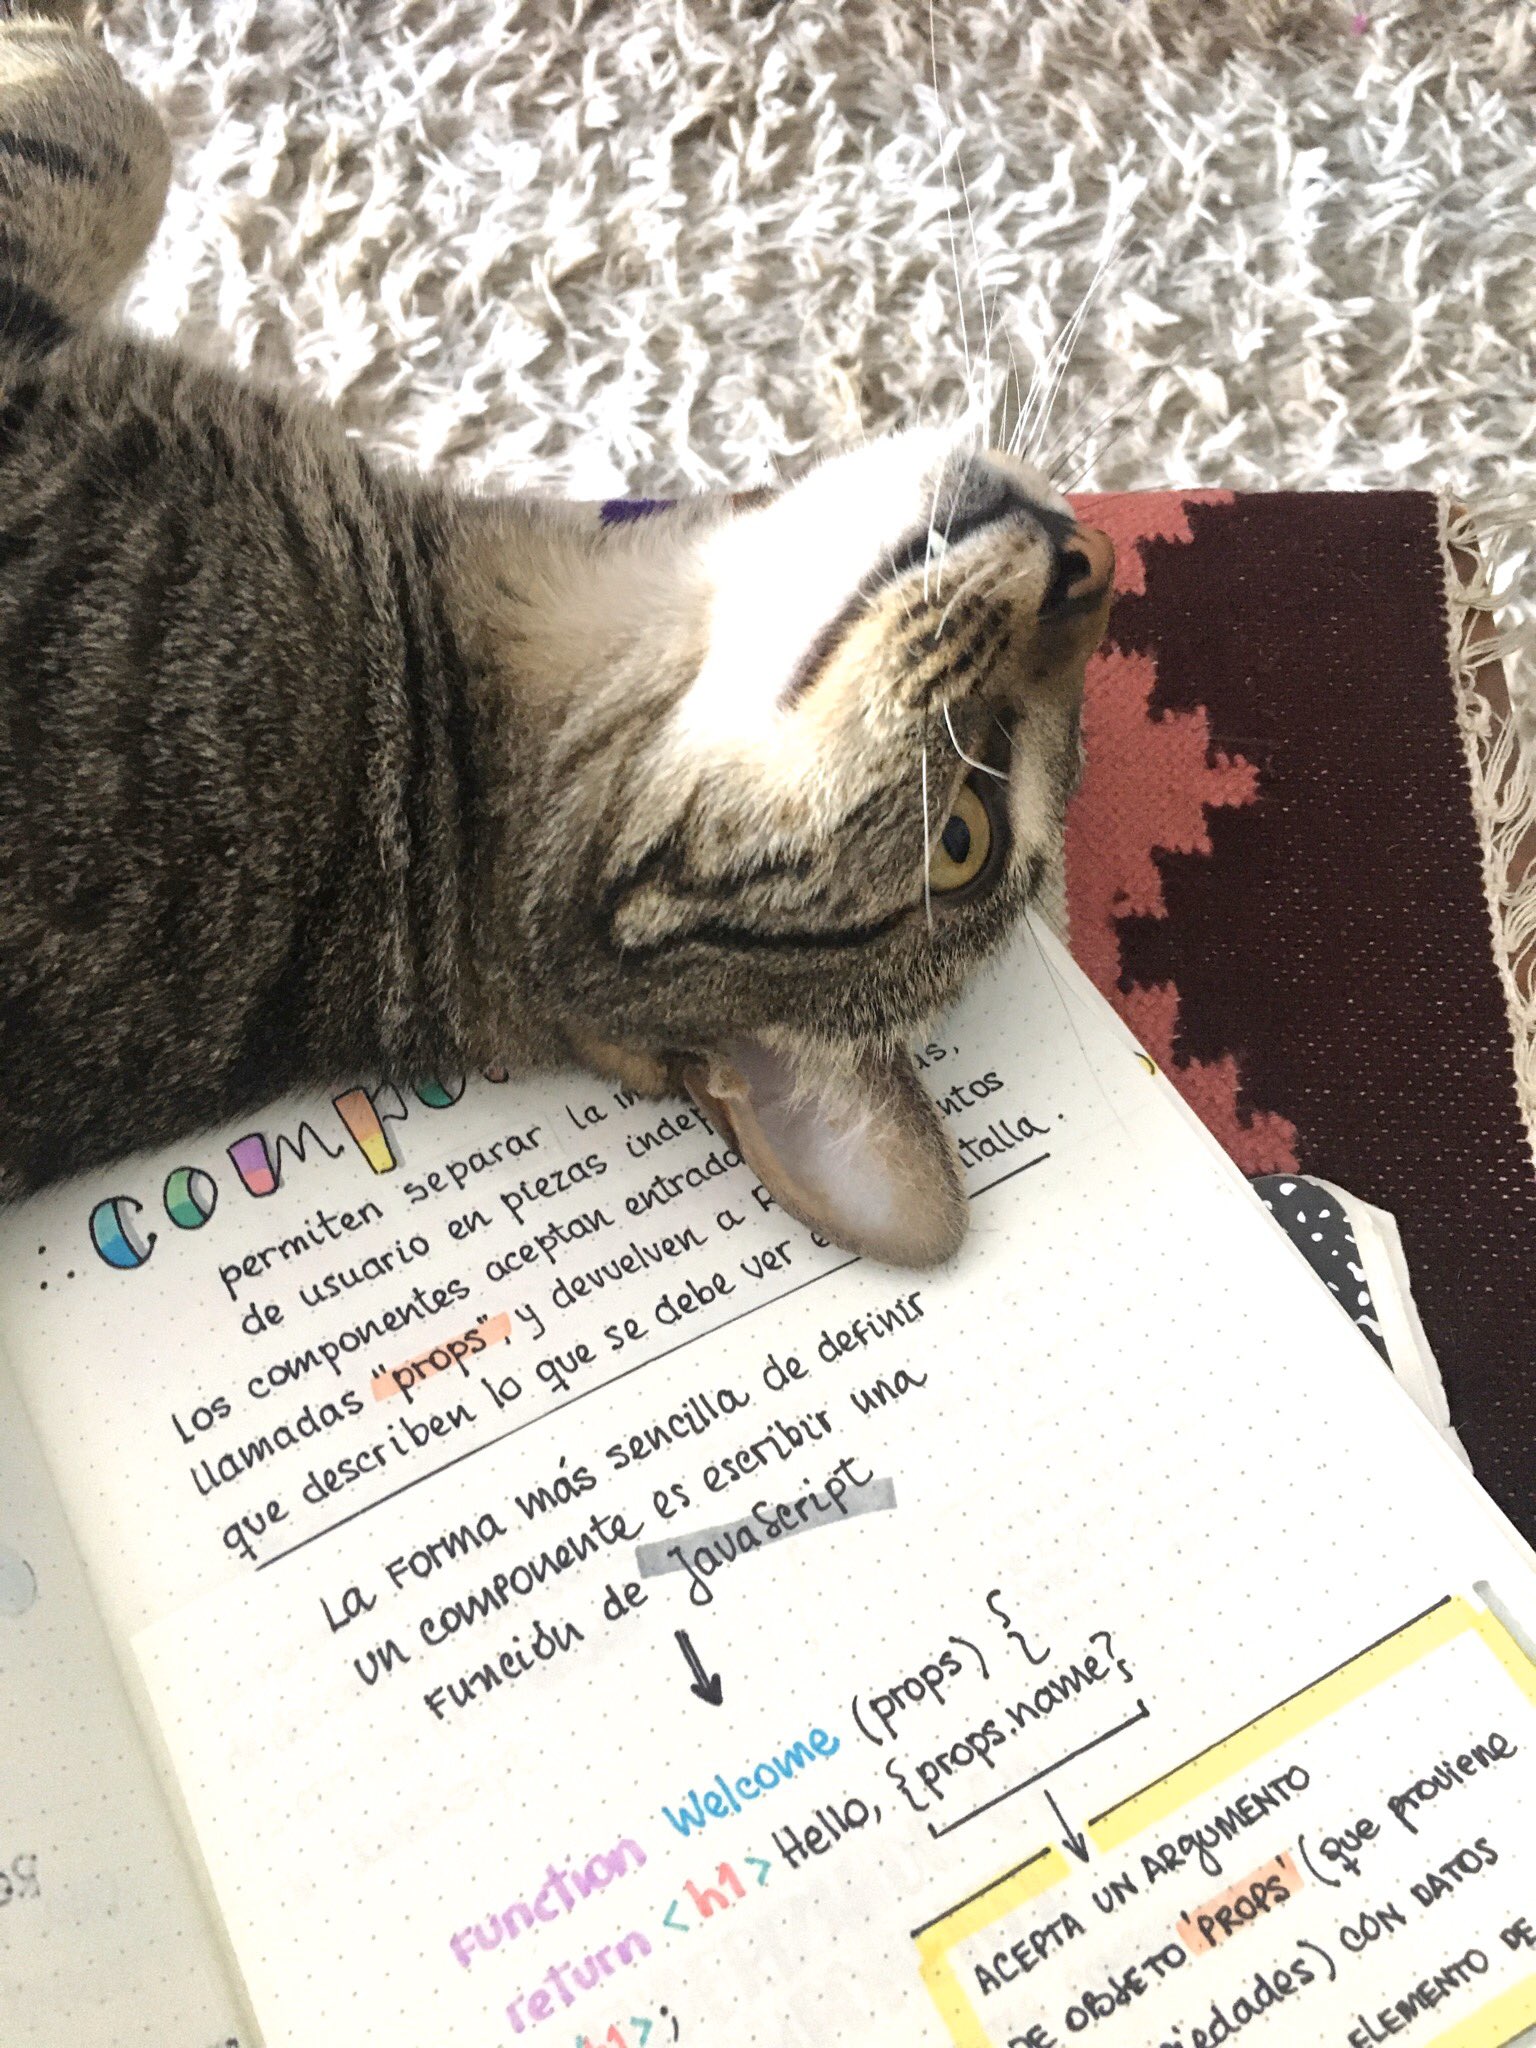 permiten separar la
de usuario en piezas
Los componentes aceptan
llamadas "props", y devuelven a
que describen lo que se debe ver
La forma más sencilla de definir
un componente es escribir una
función de JavaScript
function Welcome (props) {
return <h1> Hello, {props.name};
;
ACEPTA UN ARGUMENTO
DE OBJETO 'PROPS' (que proviene
CON DATOS
ELEMENTO DE